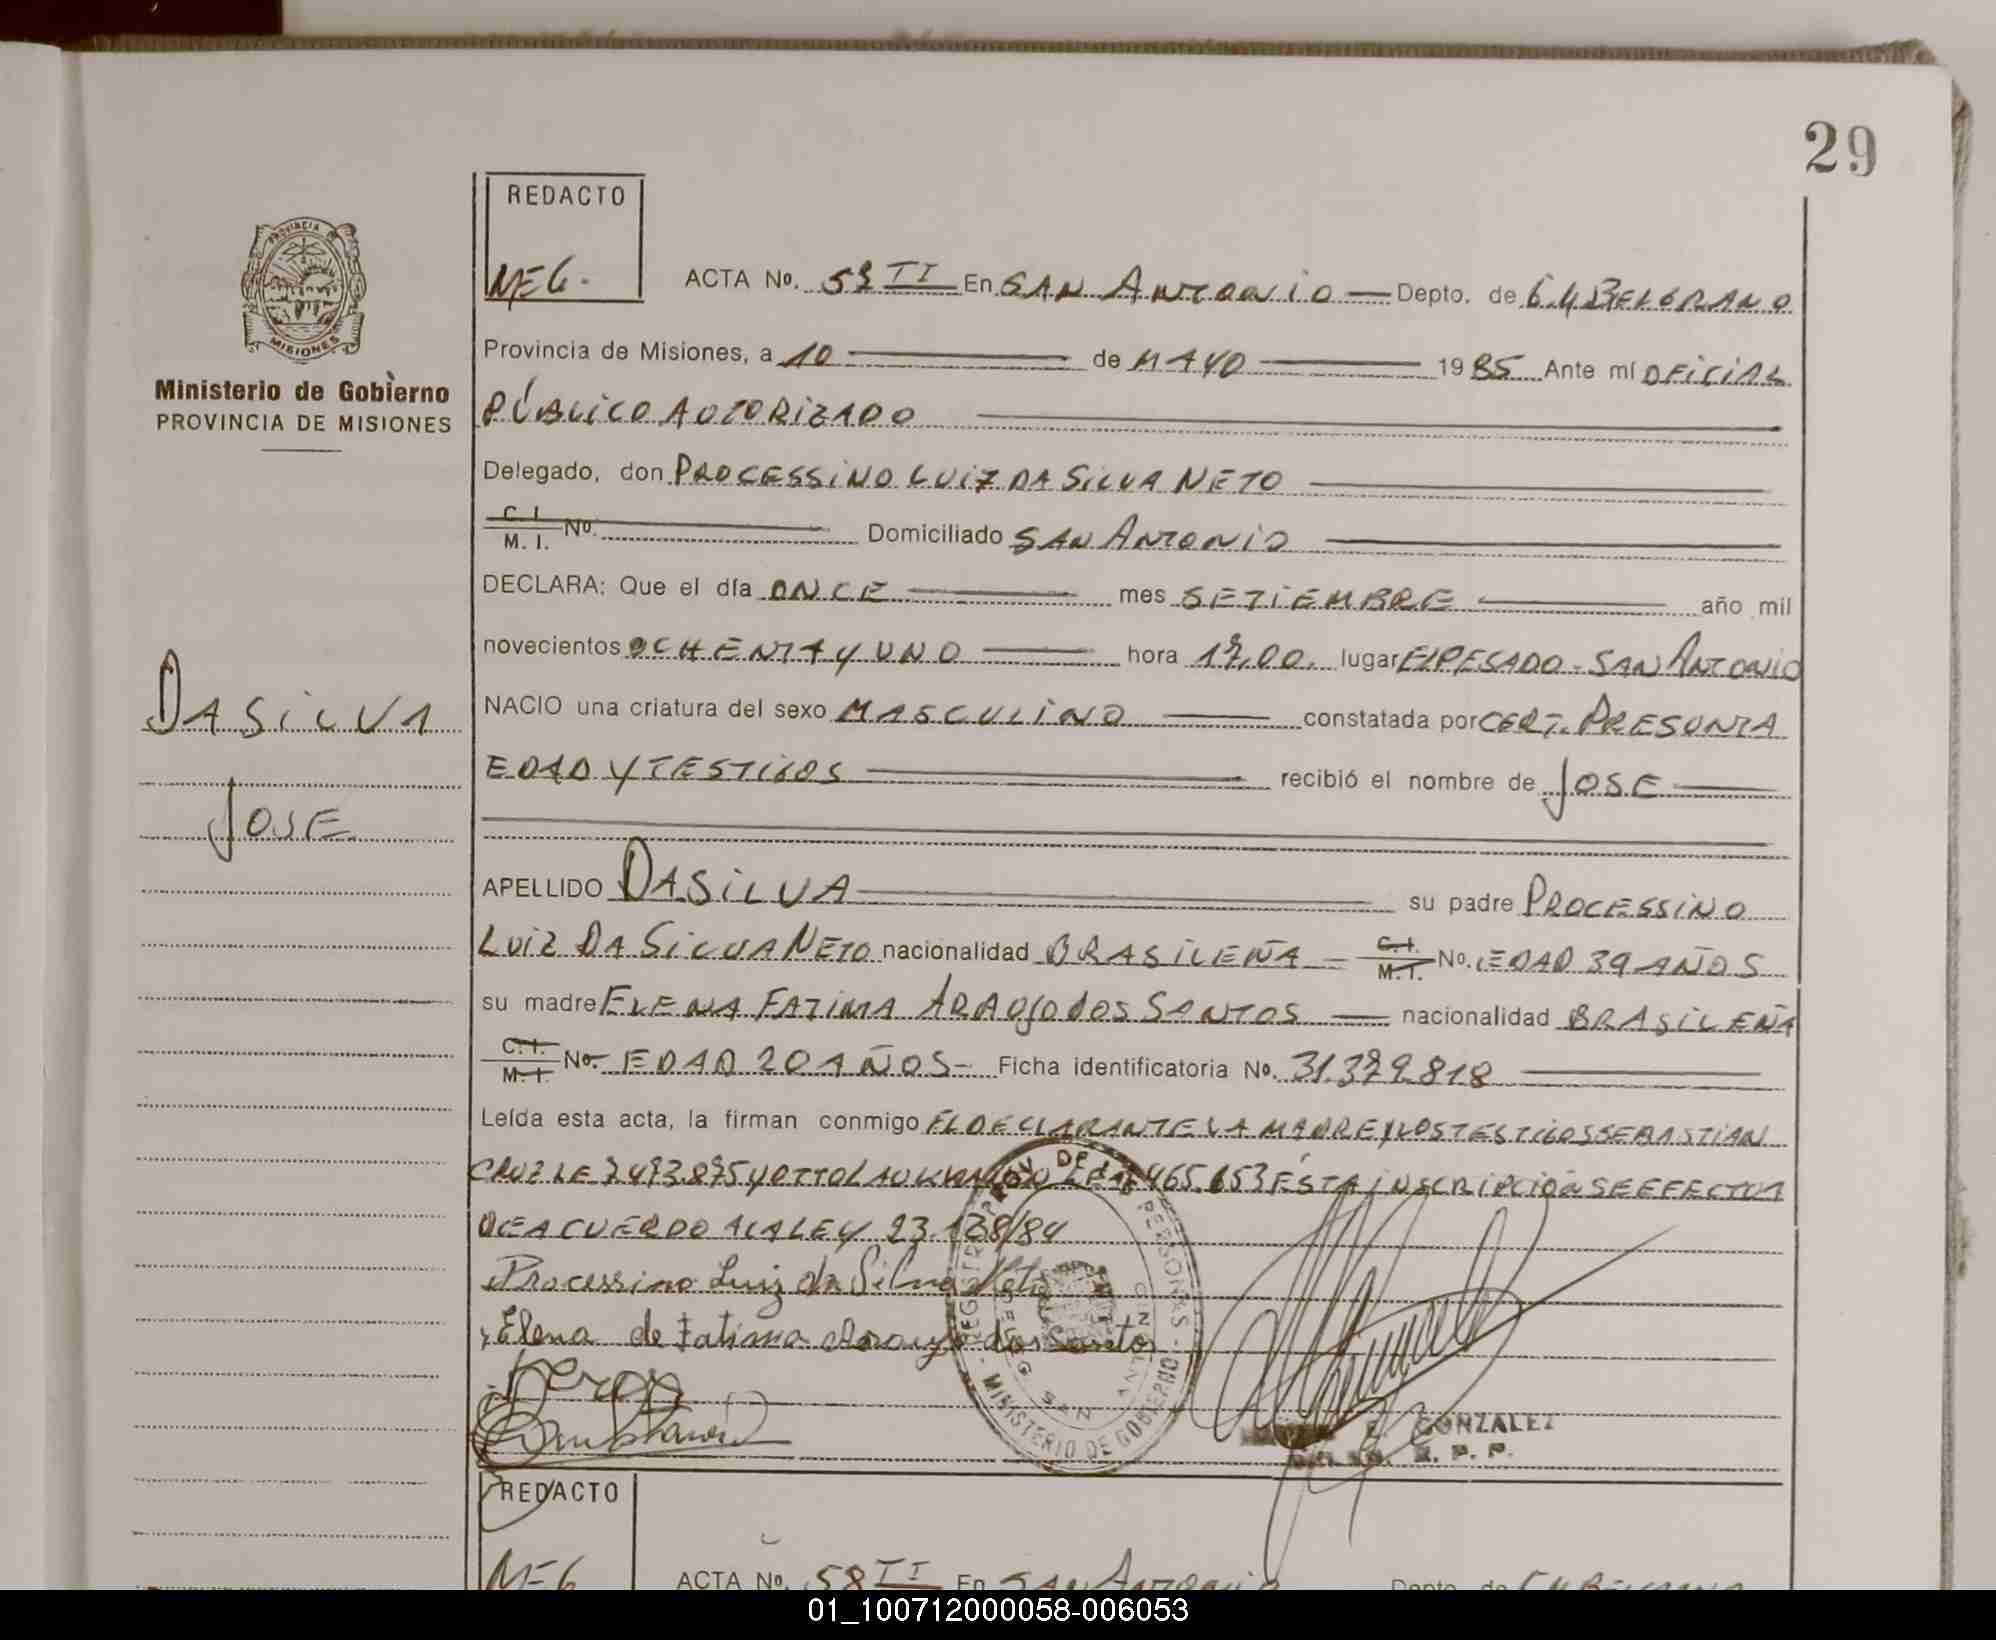 29
REDACTO
MEG.
ACTA No. 57 TI En SAN ANTONIO Depto. de G.M BELGRANO
PROVINCIA DE
MISIONES
Ministerio de Gobierno
PROVINCIA DE MISIONES
Provincia de Misiones, a 10 de MAYO 1985 Ante mí OFICIAL
PÚBLICO AUTORIZADO
Delegado, don PROCESSINO LUIZ DA SILVA NETO
C. I. M. I. No. Domiciliado SAN ANTONIO
DECLARA: Que el día ONCE mes SETIEMBRE año mil
novecientos OCHENTA Y UNO hora 17,00. lugar EL PESADO - SAN ANTONIO
DA SILVA
NACIO una criatura del sexo MASCULINO constatada por CERT. PRESUNTA
EDAD Y TESTIGOS recibió el nombre de JOSE
JOSE
APELLIDO DA SILVA su padre PROCESSINO
LUIZ DA SILVA NETO nacionalidad BRASILEÑA - C. I. M. I. No. EDAD 39 AÑOS
su madre ELENA FATIMA ARAUJO DOS SANTOS nacionalidad BRASILEÑA
C. I. M. I. No. EDAD 20 AÑOS - Ficha identificatoria No. 31.379.818
Leída esta acta, la firman conmigo EL DECLARANTE LA MADRE Y LOS TESTIGOS SEBASTIAN
CRUZ LE 7.473.875 Y OTTO LE 465.653 ESTA INSCRIPCIÓN SE EFECTUA
DE ACUERDO A LA LEY 23.128/84
Processino Luiz da Silva Neto
Elena de Fatima Araujo dos Santos
PERSONAS - MINISTERIO DE GOBIERNO
SAN
E. GONZALEZ
REDACTO
MEG
ACTA No. 58 TI En SAN ANTONIO Depto. de G.M BELGRANO
01_100712000058-006053